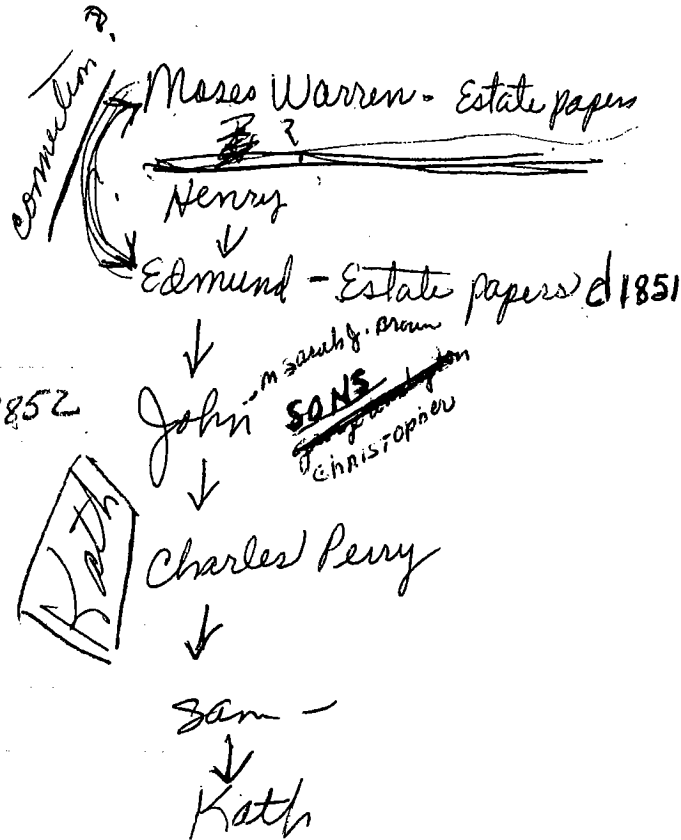 connection?
Moses Warren - Estate papers
?
Henry
Edmund - Estate papers d 1851
m Sarah J. Brown
John
SONS
Christopher
852
Kath
Charles Perry
Sam -
Kath